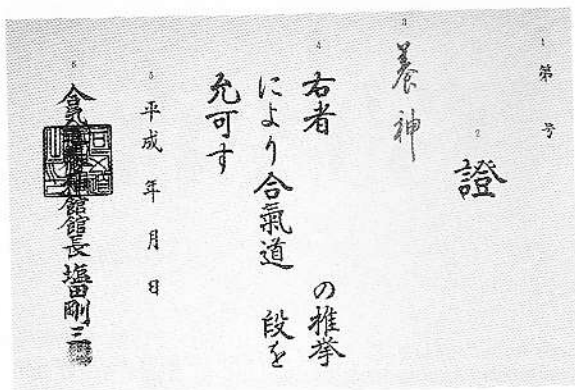 1 第 号
2 證
3 養神
4 右者 の推挙
により合氣道 段を
允可す
5 平成 年 月 日
6 合気道養神館館長 塩田剛三